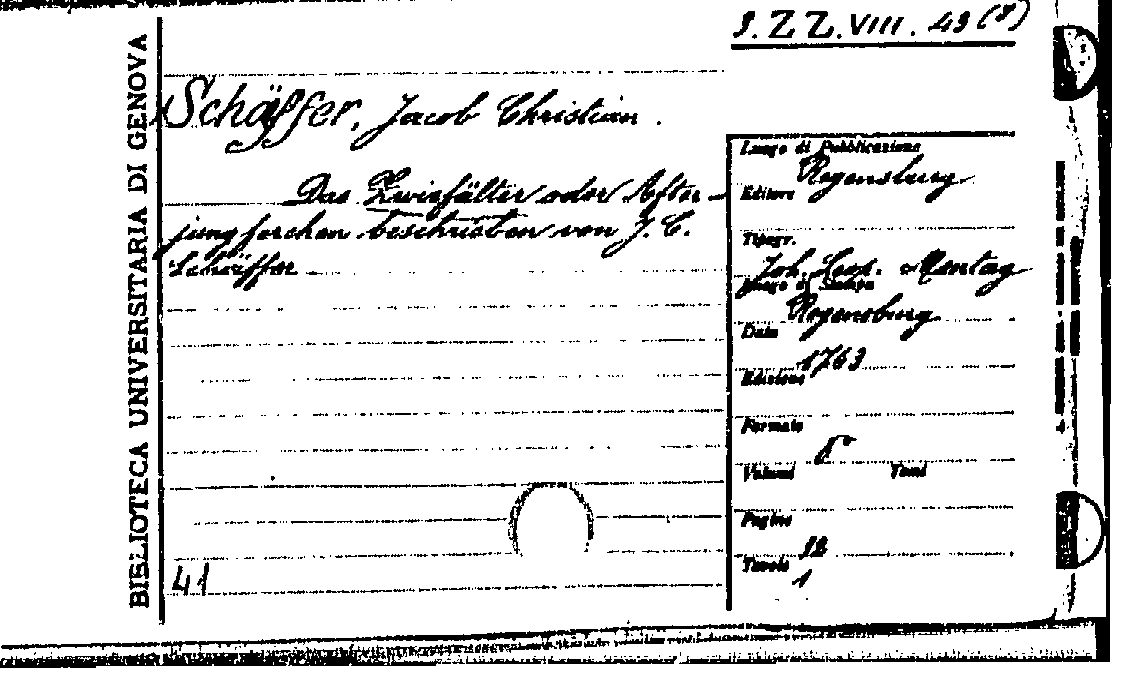 3. Z Z. VIII. 43 (8)
BIBLIOTECA UNIVERSITARIA DI GENOVA
Schäffer, Jacob Christian.
Das Zwiefälter oder After-
jüngferchen beschrieben von J. C.
Schäffer
Luogo di Pubblicazione
Regensburg
Editore
Tipogr.
Joh. Leop. Montag
Luogo di Stampa
Regensburg
Data
1763
Edizione
Formato
8°
Volumi Tomi
Pagine
32
Tavole
1
41